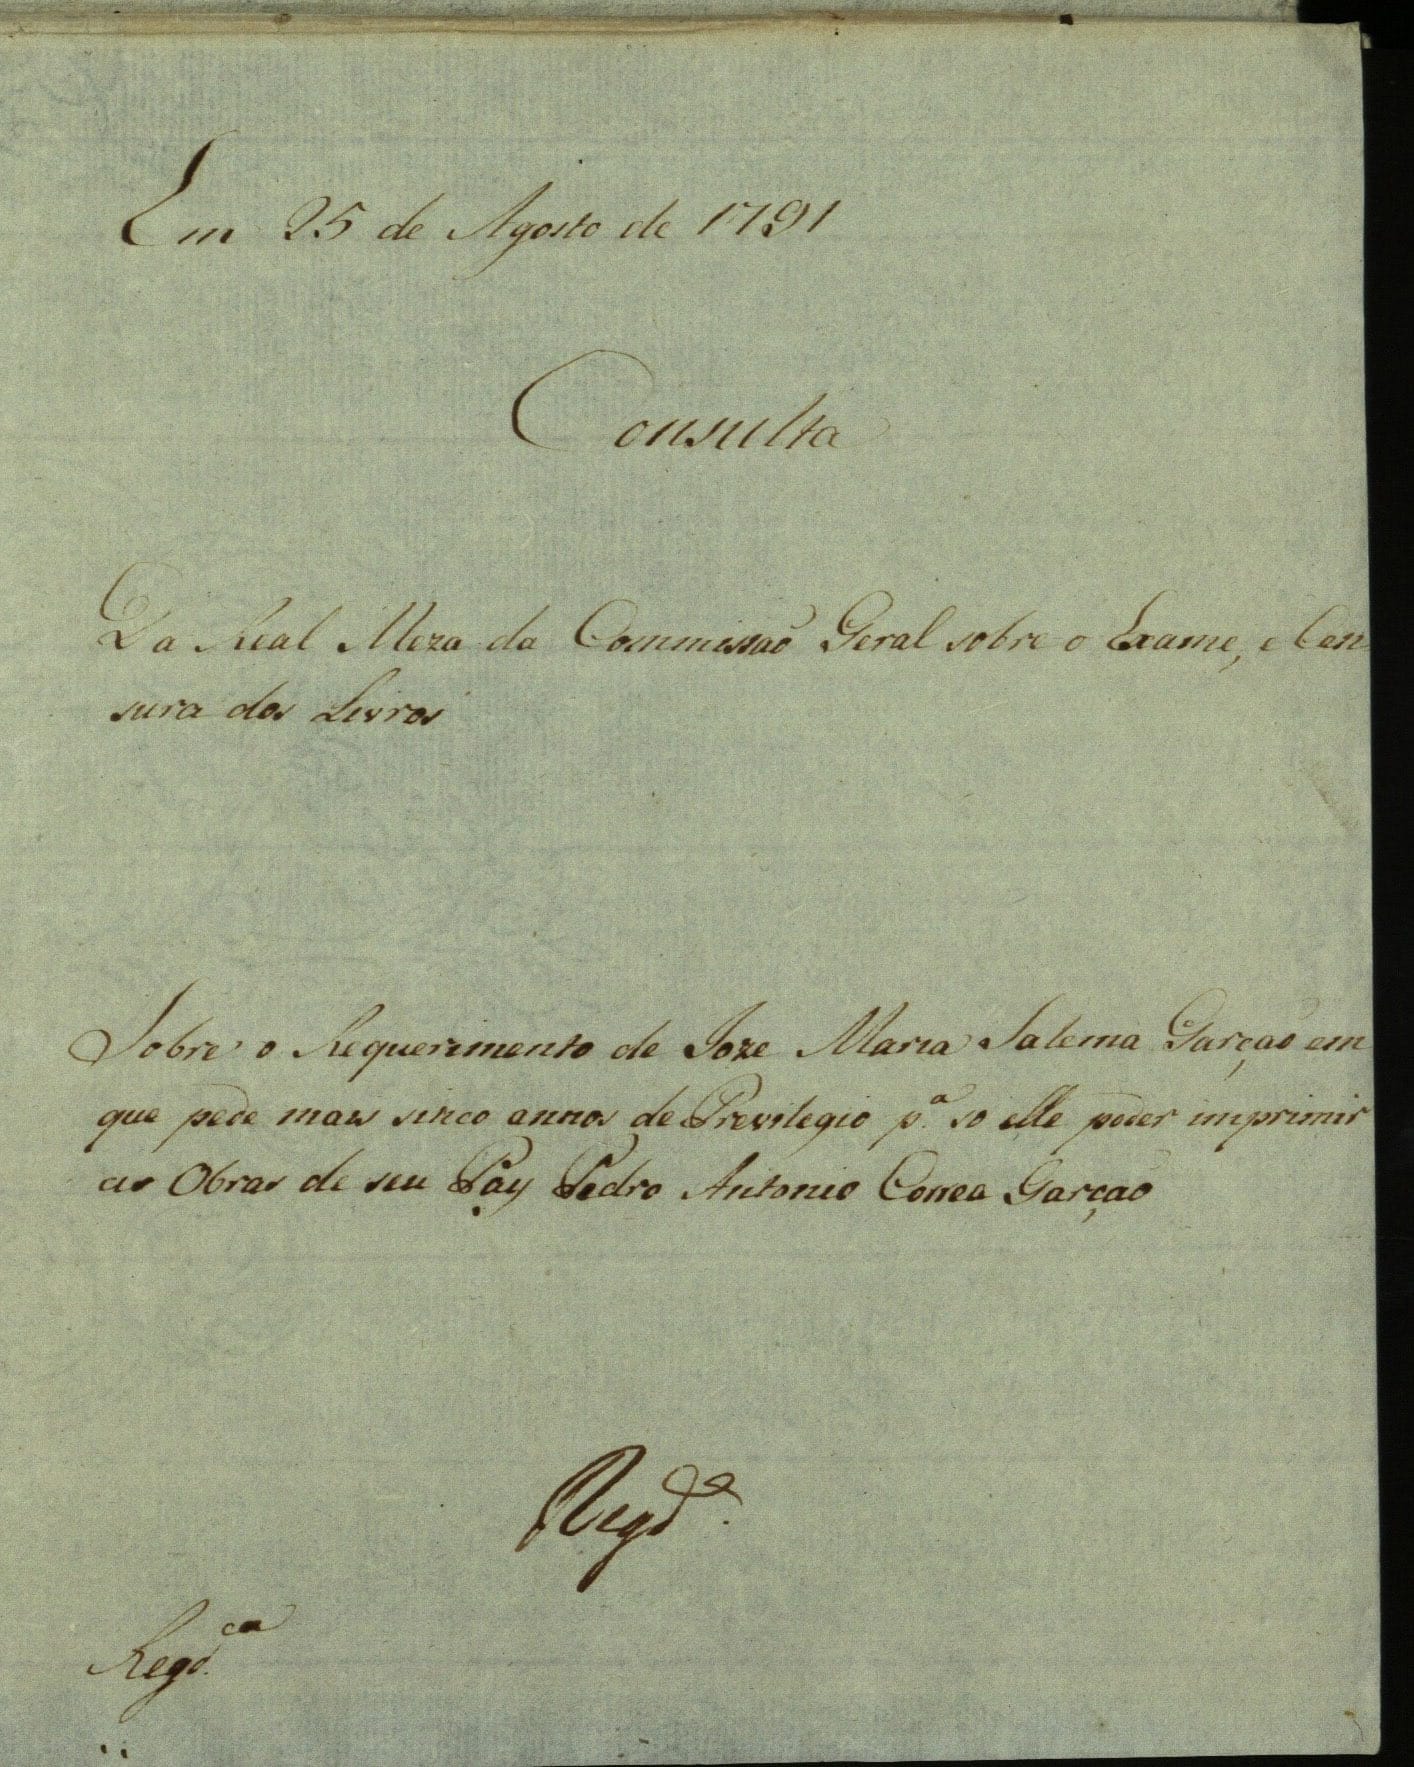 Em 25 de Agosto de 1791
Consulta
Da Real Meza da Commissaõ Geral sobre o Exame, e Cen
sura dos Livros
Sobre o Requerimento de Joze Maria Salema Garçaõ em
que pede mais sinco annos de Previlegio p.ª so elle poder imprimir
as Obras de seu Pay Pedro Antonio Correa Garçaõ
Regd.ª
Regd.